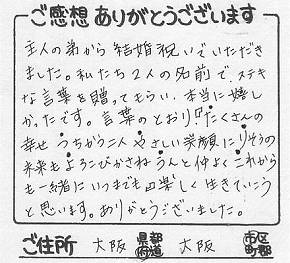 ご感想ありがとうございます
主人の弟から結婚祝いでいただき
ました。私たち2人の名前で、ステキ
な言葉を贈ってもらい、本当に嬉し
かったです。言葉のとおり!!たくさんの
幸せ うちがう二人 やさしい笑顔にりそうの
未来もよろこびかさね うんと仲よく これから
も一緒に いつまでも 楽しく生きていこう
と思います。ありがとうございました。
ご住所 大阪 都道府県 大阪 市区町郡